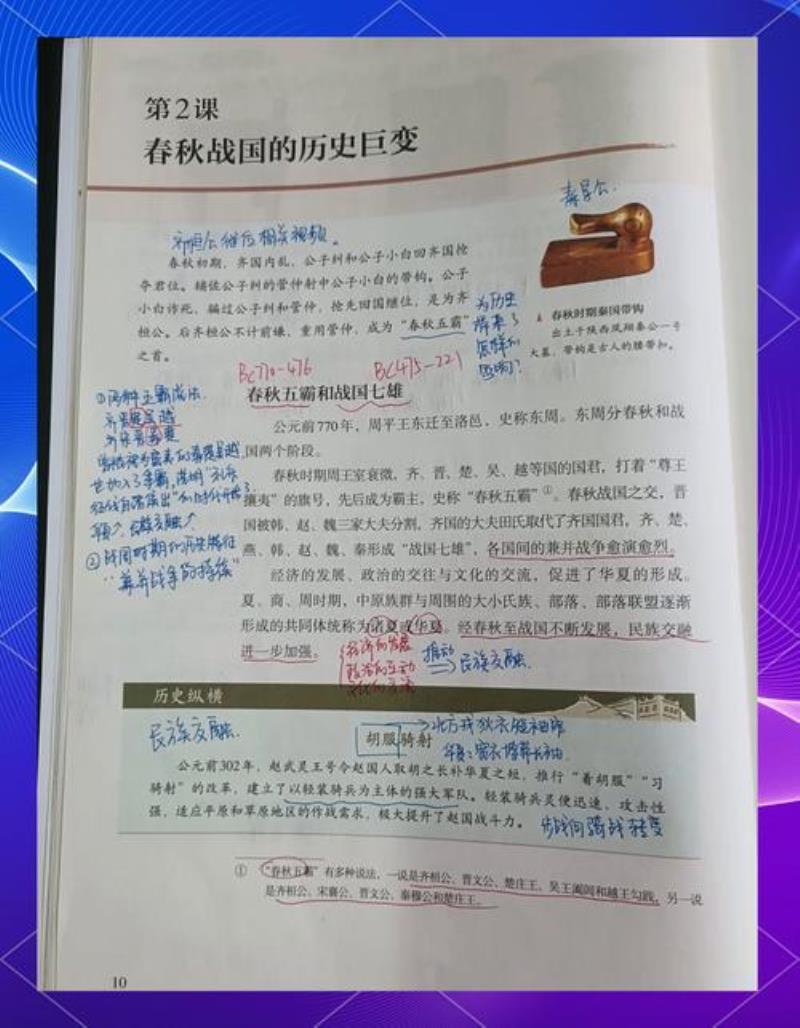 第2课
春秋战国的历史巨变
齐桓公继位相关视频。
春秋初期，齐国内乱，公子纠和公子小白回齐国抢
夺君位。辅佐公子纠的管仲射中公子小白的带钩。公子
小白诈死，骗过公子纠和管仲，抢先回国继位，是为齐
桓公。后齐桓公不计前嫌，重用管仲，成为“春秋五霸”
之首。
为历史
带来了
怎样的
影响？
秦景公.
春秋时期秦国带钩
出土于陕西凤翔秦公一号
大墓，带钩是古人的腰带扣。
BC770-476
BC475-221
春秋五霸和战国七雄
公元前770年，周平王东迁至洛邑，史称东周。东周分春秋和战
国两个阶段。
春秋时期周王室衰微，齐、晋、楚、吴、越等国的国君，打着“尊王
攘夷”的旗号，先后成为霸主，史称“春秋五霸”①。春秋战国之交，晋
国被韩、赵、魏三家大夫分割，齐国的大夫田氏取代了齐国国君，齐、楚、
燕、韩、赵、魏、秦形成“战国七雄”，各国间的兼并战争愈演愈烈。
经济的发展、政治的交往与文化的交流，促进了华夏的形成。
夏、商、周时期，中原族群与周围的大小民族、部落、部落联盟逐渐
形成的共同体统称为诸夏或华夏。经春秋至战国不断发展，民族交融
进一步加强。
①两种五霸说法.
②战国时期的历史特征
“兼并战争的持续”
经济的发展
政治的互动
文化的交流
推动
民族交融.
历史纵横
民族交融.
胡服骑射
步战向骑战转变
公元前302年，赵武灵王号令赵国人取胡之长补华夏之短，推行“着胡服”“习
骑射”的改革，建立了以轻装骑兵为主体的强大军队。轻装骑兵灵便迅速、攻击性
强，适应平原和草原地区的作战需求，极大提升了赵国战斗力。
① “春秋五霸”有多种说法，一说是齐桓公、晋文公、楚庄王、吴王阖闾和越王勾践，另一说
是齐桓公、宋襄公、晋文公、秦穆公和楚庄王。
10